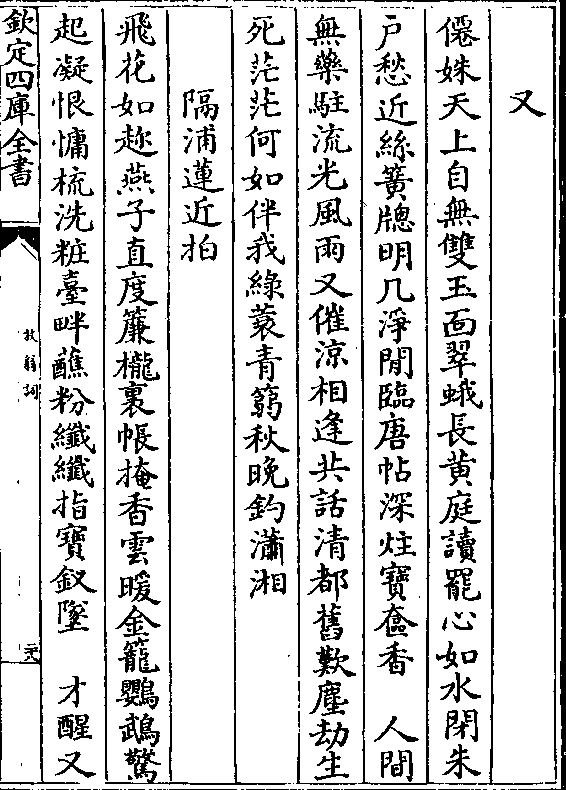 又
僊姝天上自無雙玉靣翠蛾長黄庭讀罷心如水閉朱
戸愁近絲簧牕明几淨閒臨唐帖深炷寶奩香　人間
無藥駐流光風雨又催涼相逢共話清都舊歎塵劫生
死茫茫何如伴我綠蓑青篛秋晚釣瀟湘
隔浦蓮近拍
飛花如趂燕子直度簾櫳裏帳掩香雲暖金籠鸚鵡驚
起凝恨慵梳洗粧臺畔蘸粉纖纖指寶釵墜　才醒又
欽定四庫全書
放翁詞
二六